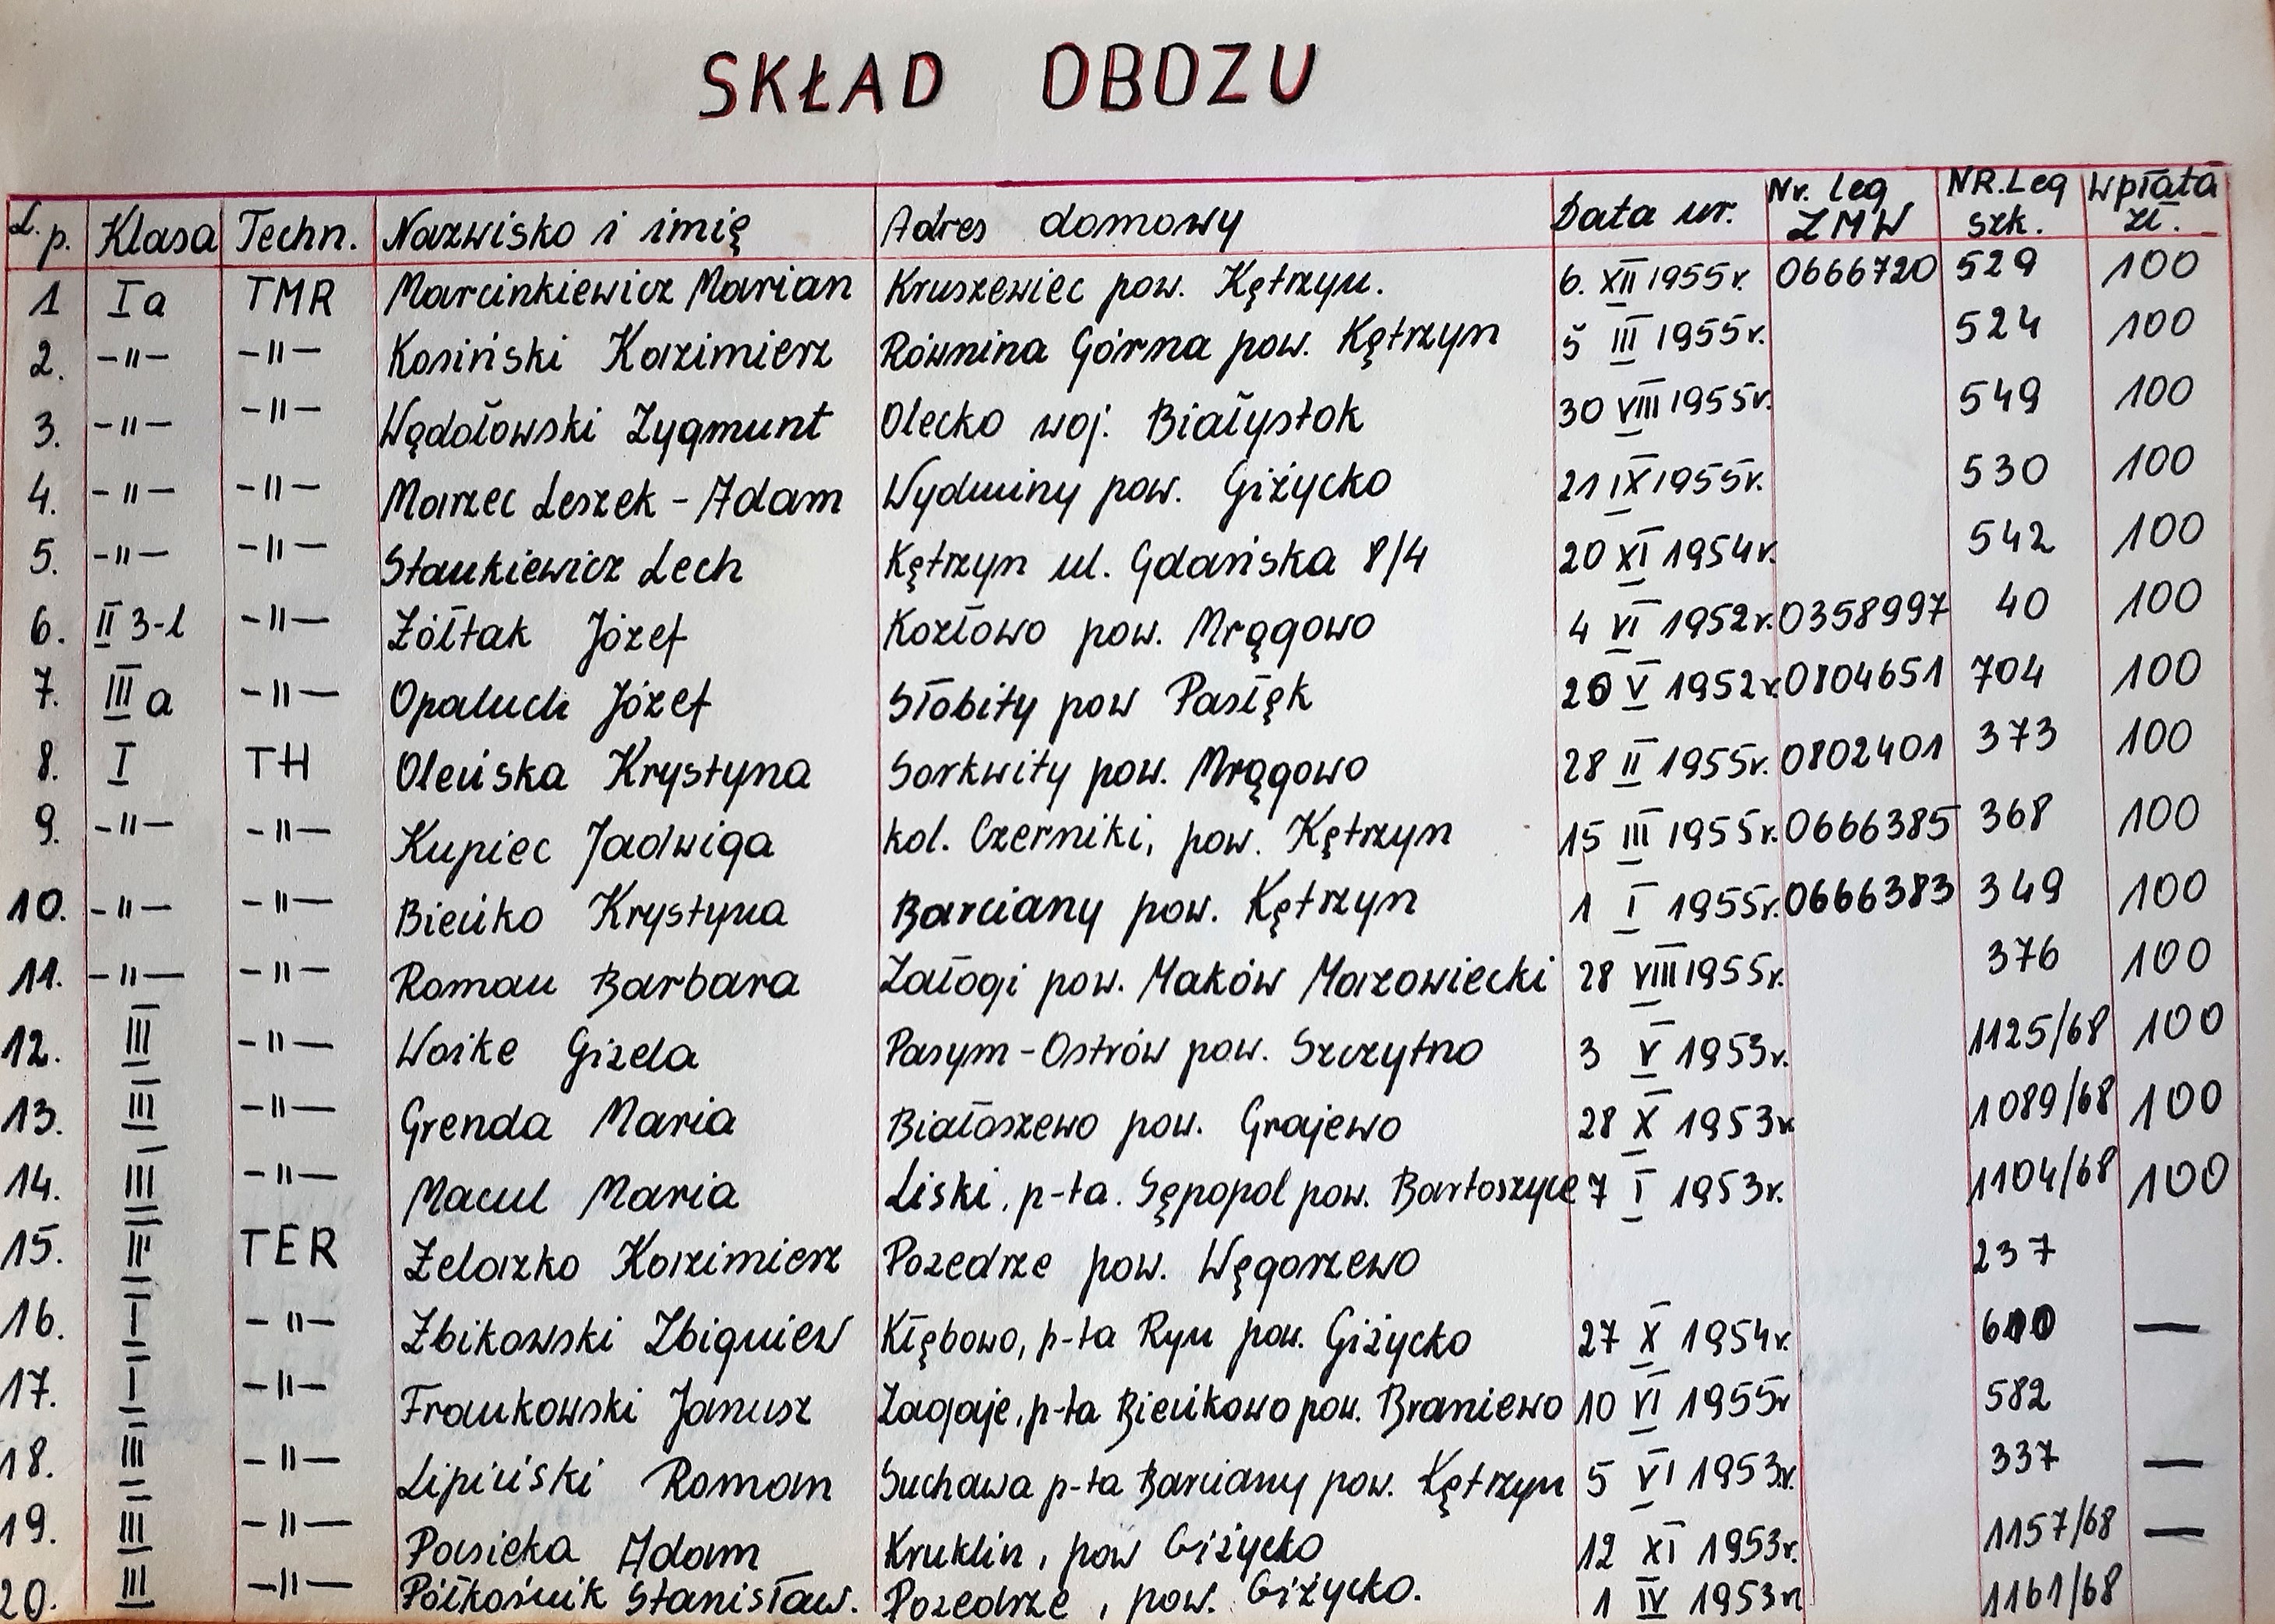 SKŁAD OBOZU
L.p. Klasa Techn. Nazwisko i imię Adres domowy Data ur. Nr. leg ZMW NR.Leg szk. Wpłata zł.
1 Ia TMR Marcinkiewicz Marian Kruszewiec pow. Kętrzyn. 6. XII 1955r. 0666720 529 100
2. -"- -"- Kosiński Kazimierz Równina Górna pow. Kętrzyn 5 III 1955r. 524 100
3. -"- -"- Wądołowski Zygmunt Olecko woj. Białystok 30 VIII 1955r. 549 100
4. -"- -"- Marzec Leszek - Adam Wydminy pow. Giżycko 21 IX 1955r. 530 100
5. -"- -"- Stankiewicz Lech Kętrzyn ul. Gdańska 8/4 20 XI 1954r. 542 100
6. II 3-l -"- Żółtak Józef Kozłowo pow. Mrągowo 4 VI 1952r. 0358997 40 100
7. III a -"- Opaluch Józef Słobity pow Pasłęk 20 V 1952r. 0804651 704 100
8. I TH Oleńska Krystyna Sorkwity pow. Mrągowo 28 II 1955r. 0802401 373 100
9. -"- -"- Kupiec Jadwiga kol. Czerniki, pow. Kętrzyn 15 III 1955r. 0666385 368 100
10. -"- -"- Bieńko Krystyna Barciany pow. Kętrzyn 1 I 1955r. 0666383 349 100
11. -"- -"- Roman Barbara Załogi pow. Maków Mazowiecki 28 VIII 1955r. 376 100
12. III -"- Woike Gizela Pasym-Ostrów pow. Szczytno 3 V 1953r. 1125/68 100
13. III -"- Grenda Maria Białoszewo pow. Grajewo 28 X 1953r. 1089/68 100
14. III -"- Macul Maria Liski, p-ta. Sępopol pow. Bartoszyce 7 I 1953r. 1104/68 100
15. II TER Żelazko Kazimierz Pozedrze pow. Węgorzewo 237
16. I -"- Żbikowski Zbigniew Kłębowo, p-ta Ryn pow. Giżycko 27 X 1954r. 600 —
17. I -"- Frankowski Janusz Zagaje, p-ta Bieńkowo pow. Braniewo 10 VI 1955r 582
18. III -"- Lipiński Roman Suchawa p-ta Barciany pow. Kętrzyn 5 VI 1953r. 337 —
19. III -"- Pasieka Adam Kruklin, pow Giżycko 12 XI 1953r. 1157/68 —
20. III -"- Półkośnik Stanisław. Pozedrze, pow. Giżycko. 1 IV 1953r. 1161/68